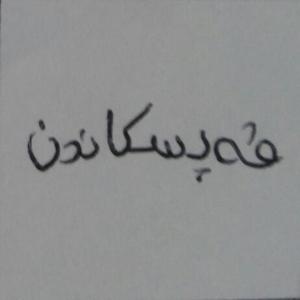 قەپسکاندن